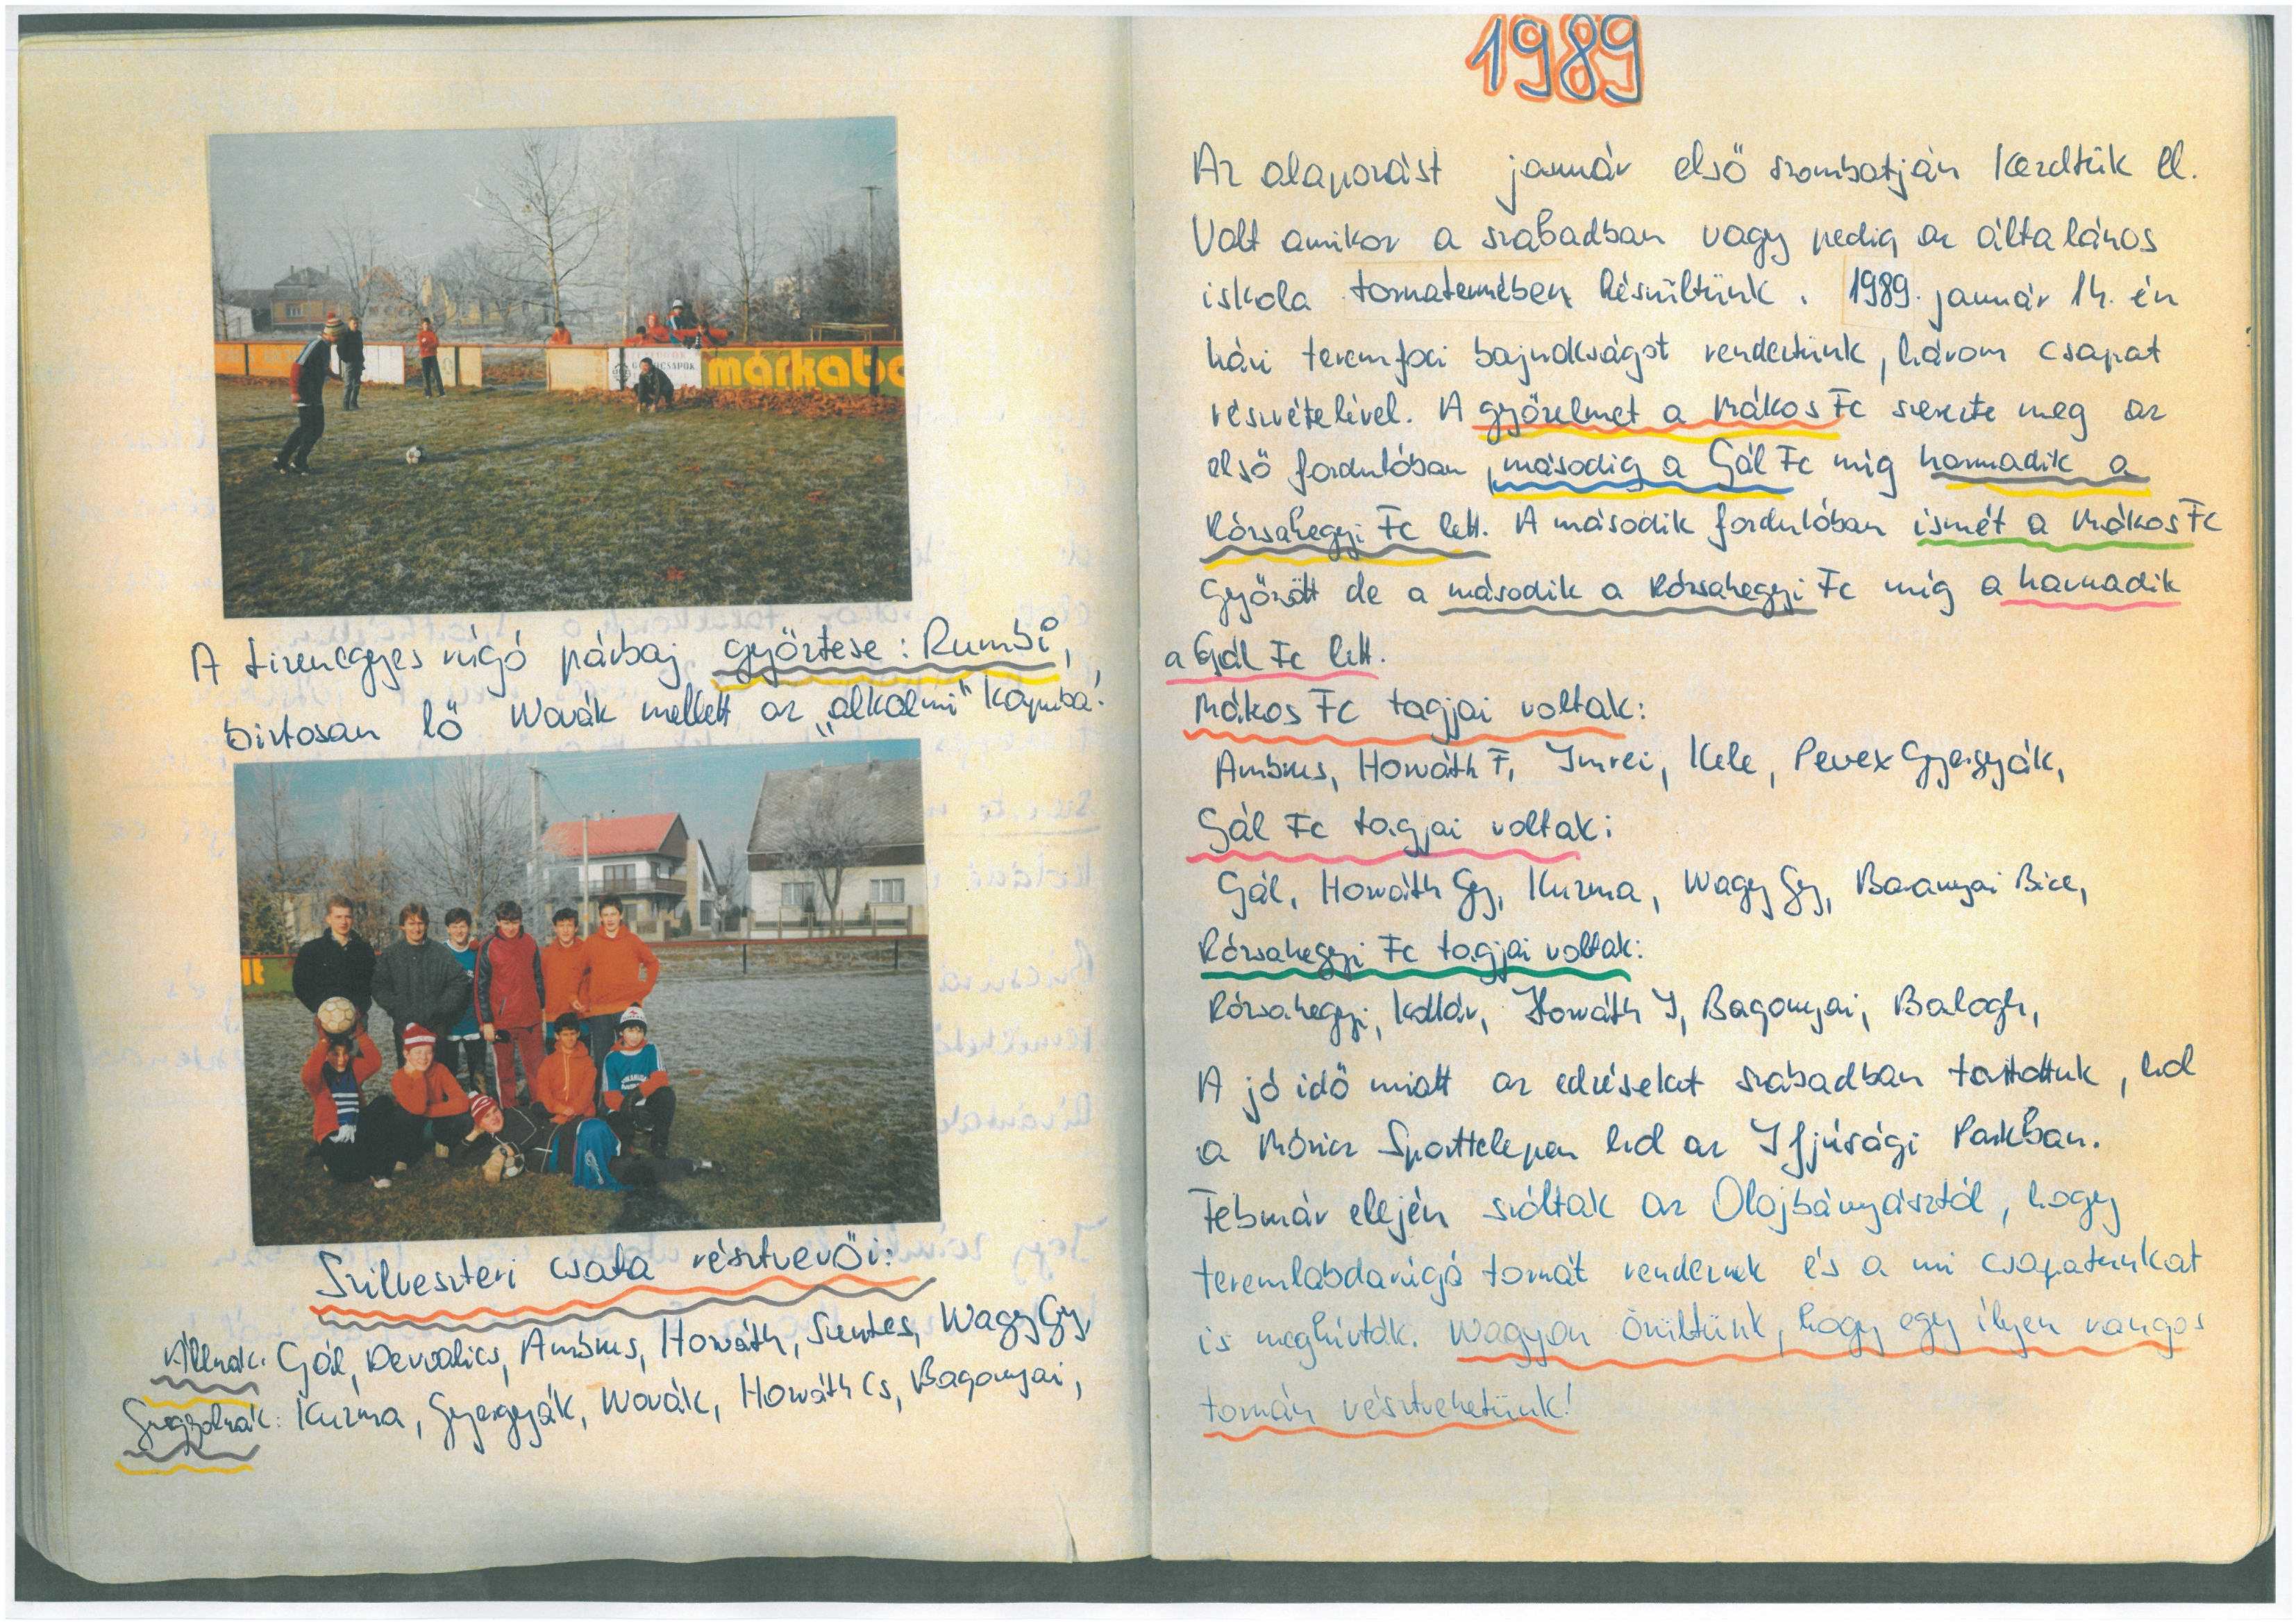 márkabo
A tizenegyes rúgó párbaj győztese: Rumbi,
biztosan lő Novák mellett az „alkalmi" kapuba!
lt
Szilveszteri csata résztvevői:
Állnak: Gál, Dervalics, Ambrus, Horváth, Szentes, Nagy Gy,
Guggolnak: Kuzma, Gyergyák, Novák, Horváth Cs, Bagonyai,
1989
Az alapozást január első szombatján kezdtük el.
Volt amikor a szabadban vagy pedig az általános
iskola tornatermében készültünk. 1989. január 14. én
házi teremfoci bajnokságot rendeztünk, három csapat
részvételével. A győzelmet a Mákos Fc szerezte meg az
első fordulóban, másodig a Gál Fc míg harmadik a
Rózsahegyi Fc lett. A második fordulóban ismét a Mákos Fc
győzött de a második a Rózsahegyi Fc míg a harmadik
a Gál Fc lett.
Mákos Fc tagjai voltak:
Ambrus, Horváth F, Imrei, Kele, Perex Gyergyák,
Gál Fc tagjai voltak:
Gál, Horváth Gy, Kuzma, Nagy Gy, Baranyai Bice,
Rózsahegyi Fc tagjai voltak:
Rózsahegyi, Kollár, Horváth I, Bagonyai, Balogh,
A jó idő miatt az edzéseket szabadban tartottuk, hol
a Móricz Sporttelepen hol az Ifjúsági Parkban.
Február elején szóltak az Olajbányásztól, hogy
teremlabdarúgó tornát rendeznek és a mi csapatunkat
is meghívták. Nagyon örültünk, hogy egy ilyen rangos
tornán résztvehetünk!